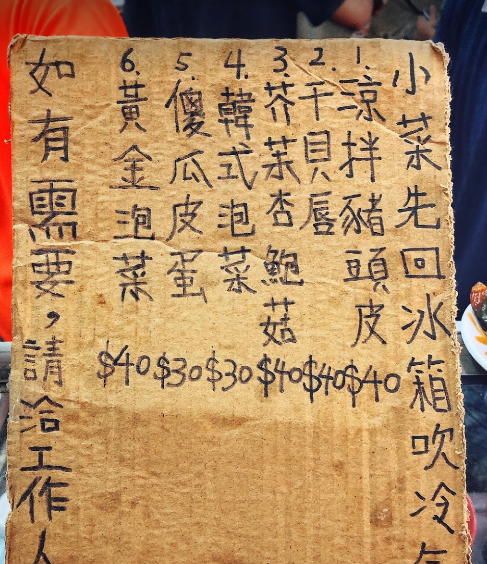 小菜先回冰箱吹冷
1.涼拌豬頭皮 $40
2.干貝唇 $40
3.芥茉杏鮑菇 $40
4.韓式泡菜 $30
5.傻瓜皮蛋 $30
6.黃金泡菜 $40
如有需要，請洽工作人